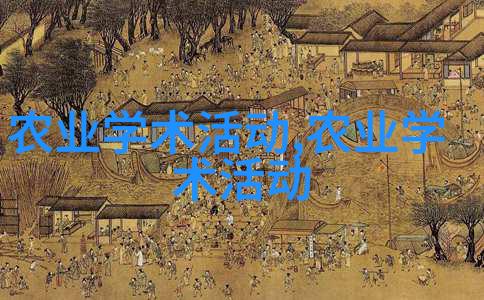 农业学术活动,农业学
术活动